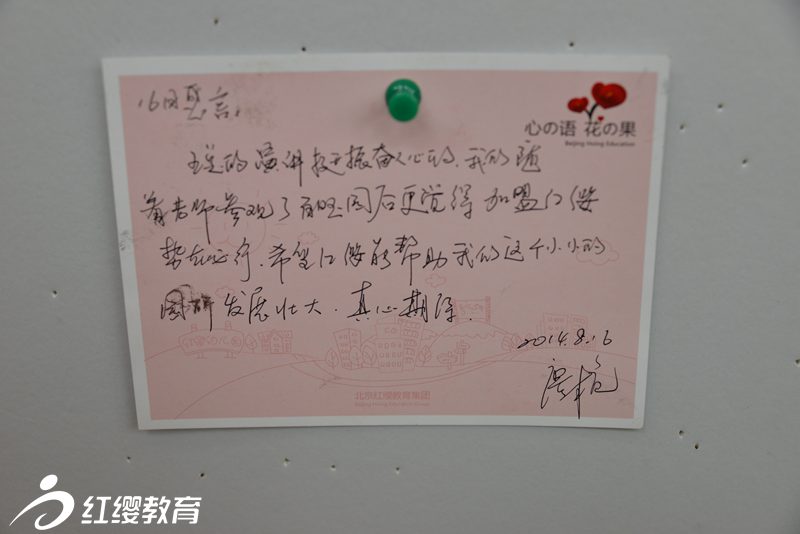 16日感言:
心の语 花の果
Beijing Hoing Education
王总的演讲挺振奋人心的,我们随
着老师参观了 园后更觉得 加盟红缨
势在必行,希望红缨能帮助我们这个小小的
园所发展壮大.真心期待.
2014.8.16
北京红缨教育集团
Beijing Hoing Education Group
红缨教育